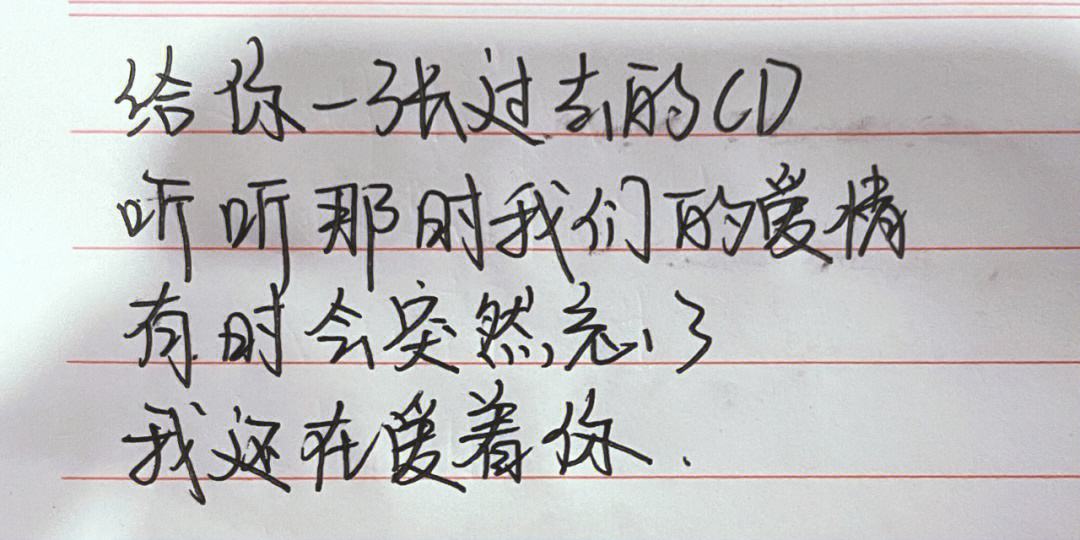 给你一张过去的CD
听听那时我们的爱情
有时会突然忘了
我还在爱着你.